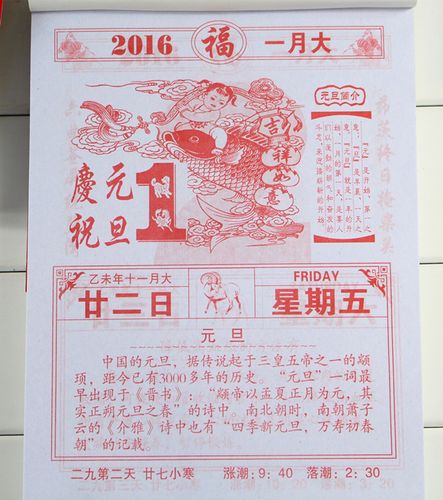 2016 福 一月大
元旦简介
吉祥如意
慶祝元旦
1
乙未年十一月大
廿二日
FRIDAY
星期五
元旦
中国的元旦，据传说起于三皇五帝之一的颛
顼，距今已有3000多年的历史。“元旦”一词最
早出现于《晋书》：“颛帝以孟夏正月为元，其
实正朔元旦之春”的诗中。南北朝时，南朝萧子
云的《介雅》诗中也有“四季新元旦，万寿初春
朝”的记载。
二九第二天 廿七小寒 涨潮：9：40 落潮：2：30